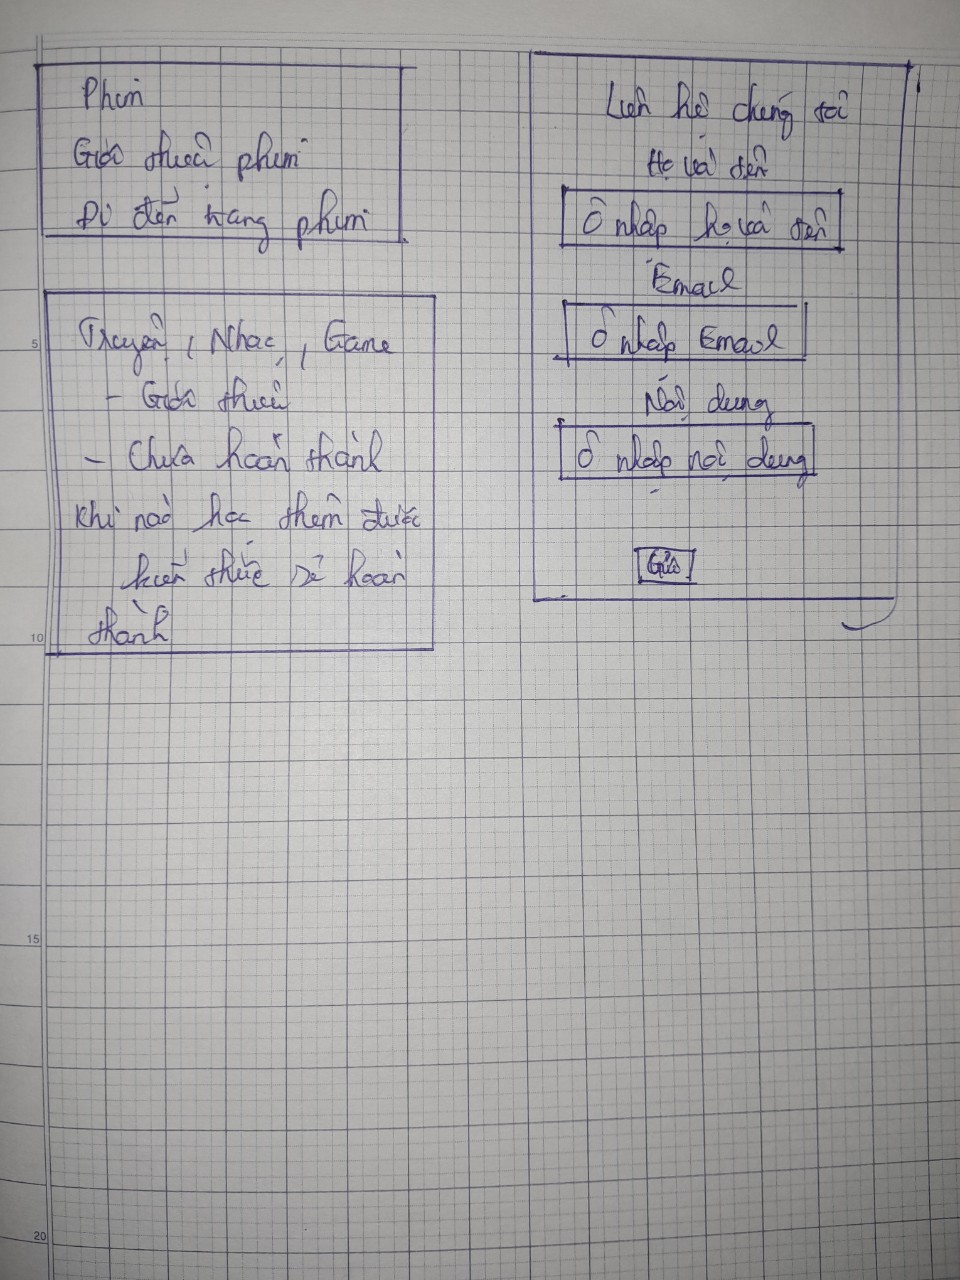 Phim
Giới thiệu phim
Đi đến trang phim
Truyện, Nhạc, Game
- Giới thiệu
- Chưa hoàn thành
Khi nào học thêm được
kiến thức sẽ hoàn
thành
Liên hệ chúng tôi
Họ và tên
Ô nhập họ và tên
Email
Ô nhập Email
Nội dung
Ô nhập nội dung
Gửi
5
10
15
20